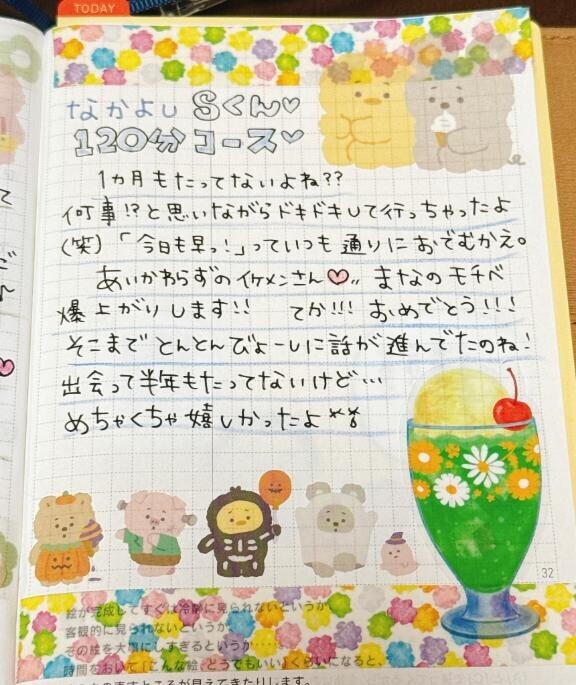 TODAY
なかよし Sくん♡
120分コース♡
1カ月もたってないよね??
何事!?と思いながらドキドキして行っちゃったよ
(笑)「今日も早っ!」っていつも通りにおでむかえ。
あいかわらずのイケメンさん♡〃 まなのモチベ
爆上がりします!! てか!!! おめでとう!!!
そこまでとんとんびょーしに話が進んでたのね!
出会って半年もたってないけど…
めちゃくちゃ嬉しかったよ
32
絵が完成してすぐは冷静に見られないというか、
客観的に見られないというか、
その絵を大事にしすぎるというか……、
時間をおいて「こんな絵、どうでもいい」くらいになると、
直すところが見えてきたりします。